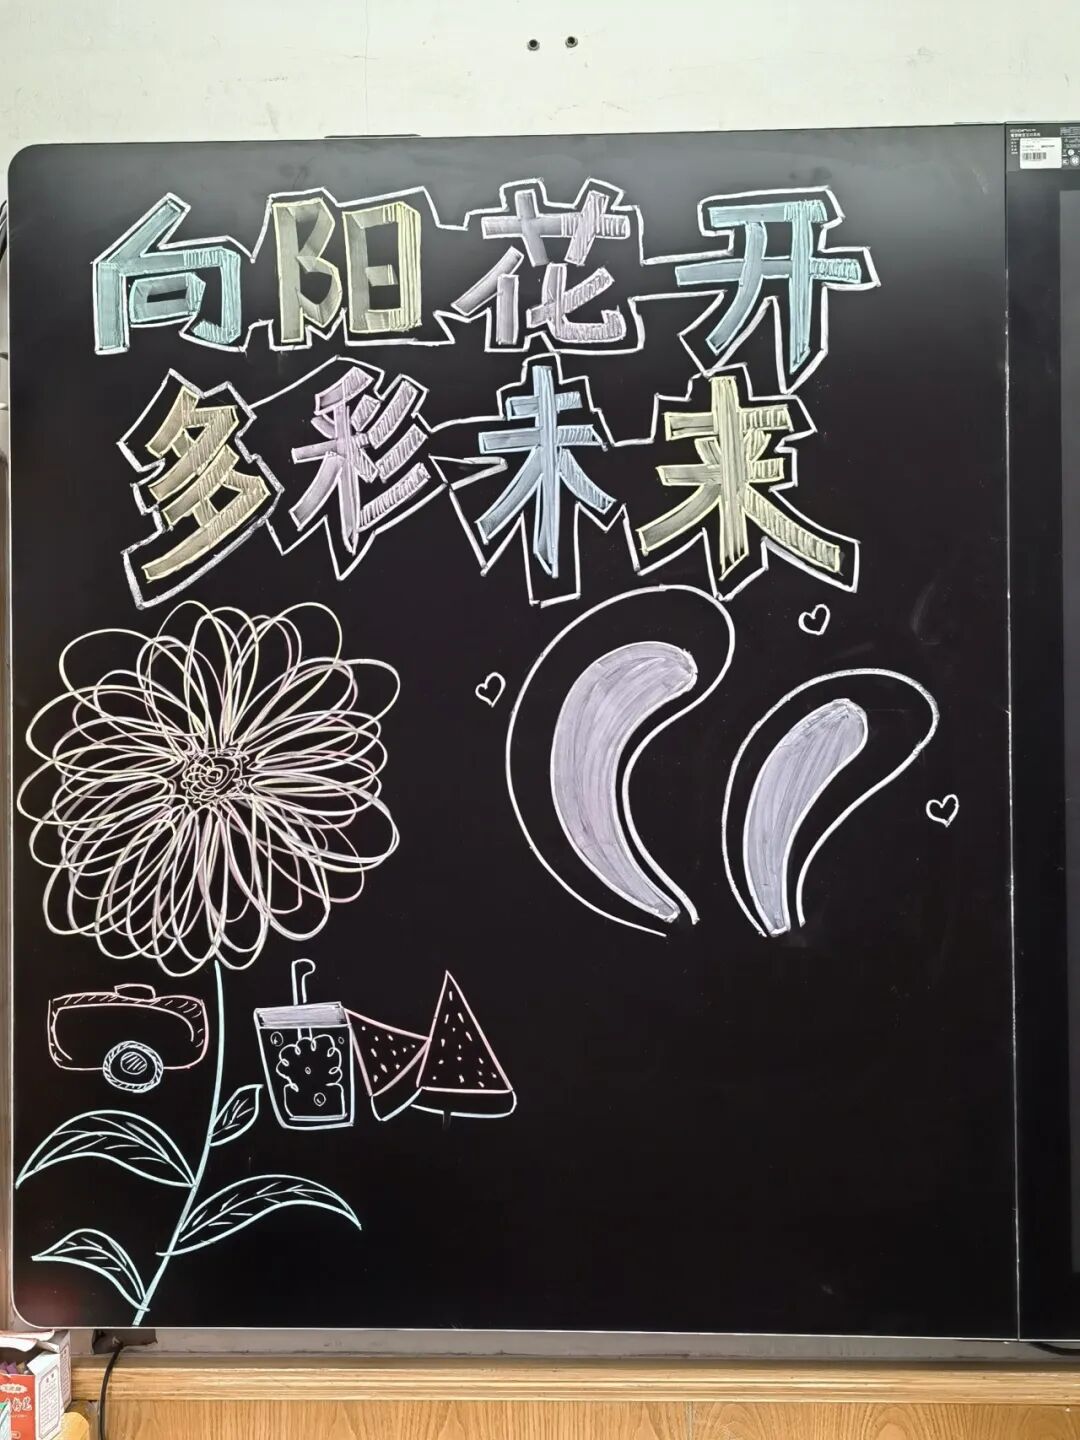 向阳花开
多彩未来